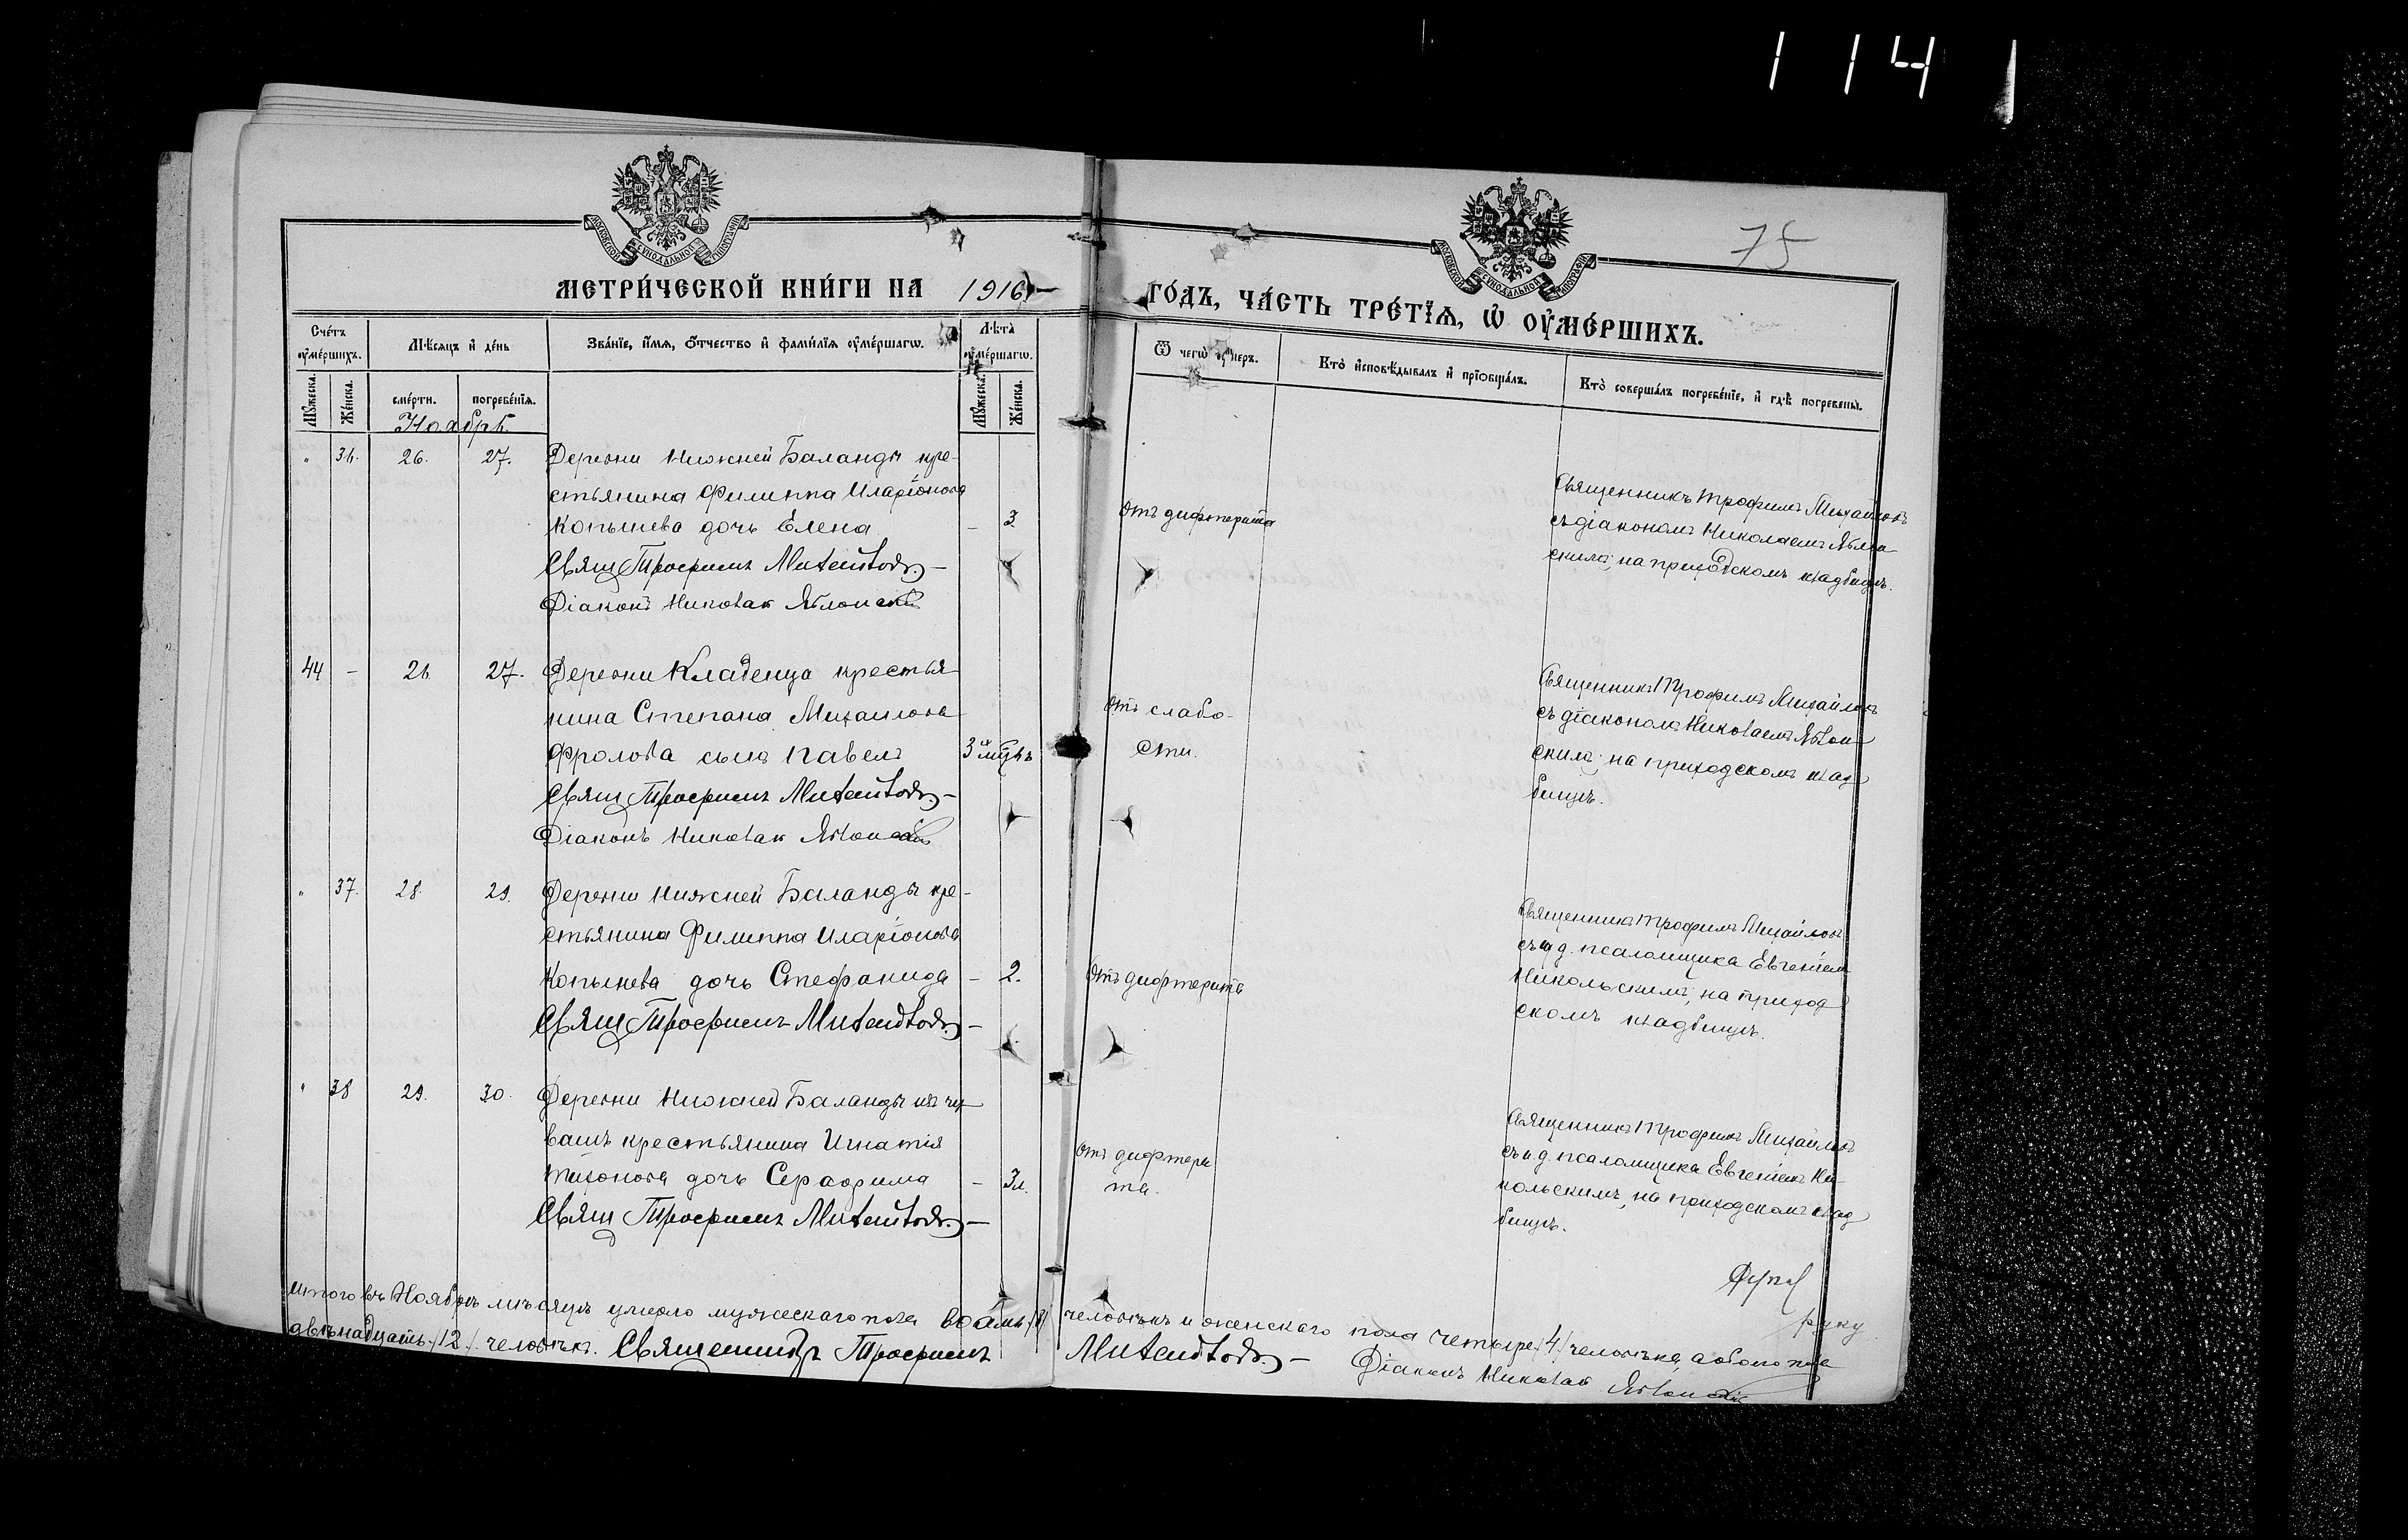 1 14 1
75
МОСКОВСКОЙ СѴНОДАЛЬНОЙ ТИПОГРАФІИ
МОСКОВСКОЙ СѴНОДАЛЬНОЙ ТИПОГРАФІИ
МЕТРИ́ЧЕСКОЙ КНИ́ГИ НА 1916 ГО́ДЪ, ЧА́СТЬ ТРЕ́ТЇѦ, Ѡ҆ ОУ҆МЕ́РШИХЪ.
Сче́тъ оу҆ме́ршихъ.
Мѣ́сѧцъ и҆ де́нь
Зва́нїе, и҆́мѧ, ѻ҆́тчество и҆ фами́лїѧ оу҆ме́ршагѡ.
Лѣ́та оу҆ме́ршагѡ.
Ѿ чегѡ̀ оу҆́меръ.
Кто̀ и҆сповѣ́дывалъ и҆ прїѡбща́лъ.
Кто̀ соверша́лъ погребе́нїе, и҆ гдѣ̀ погребены̀.
Мꙋ́жеска.
Же́нска.
сме́рти.
погребе́нїѧ.
Мꙋ́жеска.
Же́нска.
Ноябрь.
" 36. 26. 27. Деревни Нижней Баланды кре-
стьянина Филиппа Иларіонова
Копышева дочь Елена – 3.
Свящ Трофимъ Михайловъ –
Діаконъ Николай Яблонскій
Отъ дифтерита
Священникъ Трофимъ Михайловъ
съ діакономъ Николаемъ Яблон-
скимъ; на приходскомъ кладбищѣ.
44 – 26. 27. Деревни Кладенца крестья-
нина Степана Михаилова
Фролова сынъ Павелъ 3 мѣ
Свящ Трофимъ Михайловъ –
Діаконъ Николай Яблонскій
Отъ слабо-
сти.
Священникъ Трофимъ Михайловъ
съ діакономъ Николаемъ Яблон-
скимъ; на приходскомъ клад-
бищѣ.
" 37. 28. 29. Деревни Нижней Баланды кре-
стьянина Филиппа Иларіонова
Копышева дочь Стефанида – 2.
Свящ Трофимъ Михайловъ –
Отъ дифтерита
Священникъ Трофимъ Михайловъ
съ и. д. псаломщика Евгеніемъ
Никольскимъ; на приход-
скомъ кладбищѣ.
" 38 29. 30. Деревни Нижней Баланды изъ чу-
вашъ крестьянина Игнатія
Тихонова дочь Серафима – 3 л.
Свящ Трофимъ Михайловъ –
Отъ дифтери
та.
Священникъ Трофимъ Михайловъ
съ и. д. псаломщика Евгеніемъ Ни-
кольскимъ, на приходскомъ клад-
бищѣ.
руку
Итого въ Ноябрѣ мѣсяцѣ умерло мужескаго пола восемь /8/ человѣкъ и женскаго пола четыре /4/ человѣка, а обоего пола
двѣнадцать /12/ человѣкъ. Священникъ Трофимъ Михайловъ. – Діаконъ Николай Яблонскій